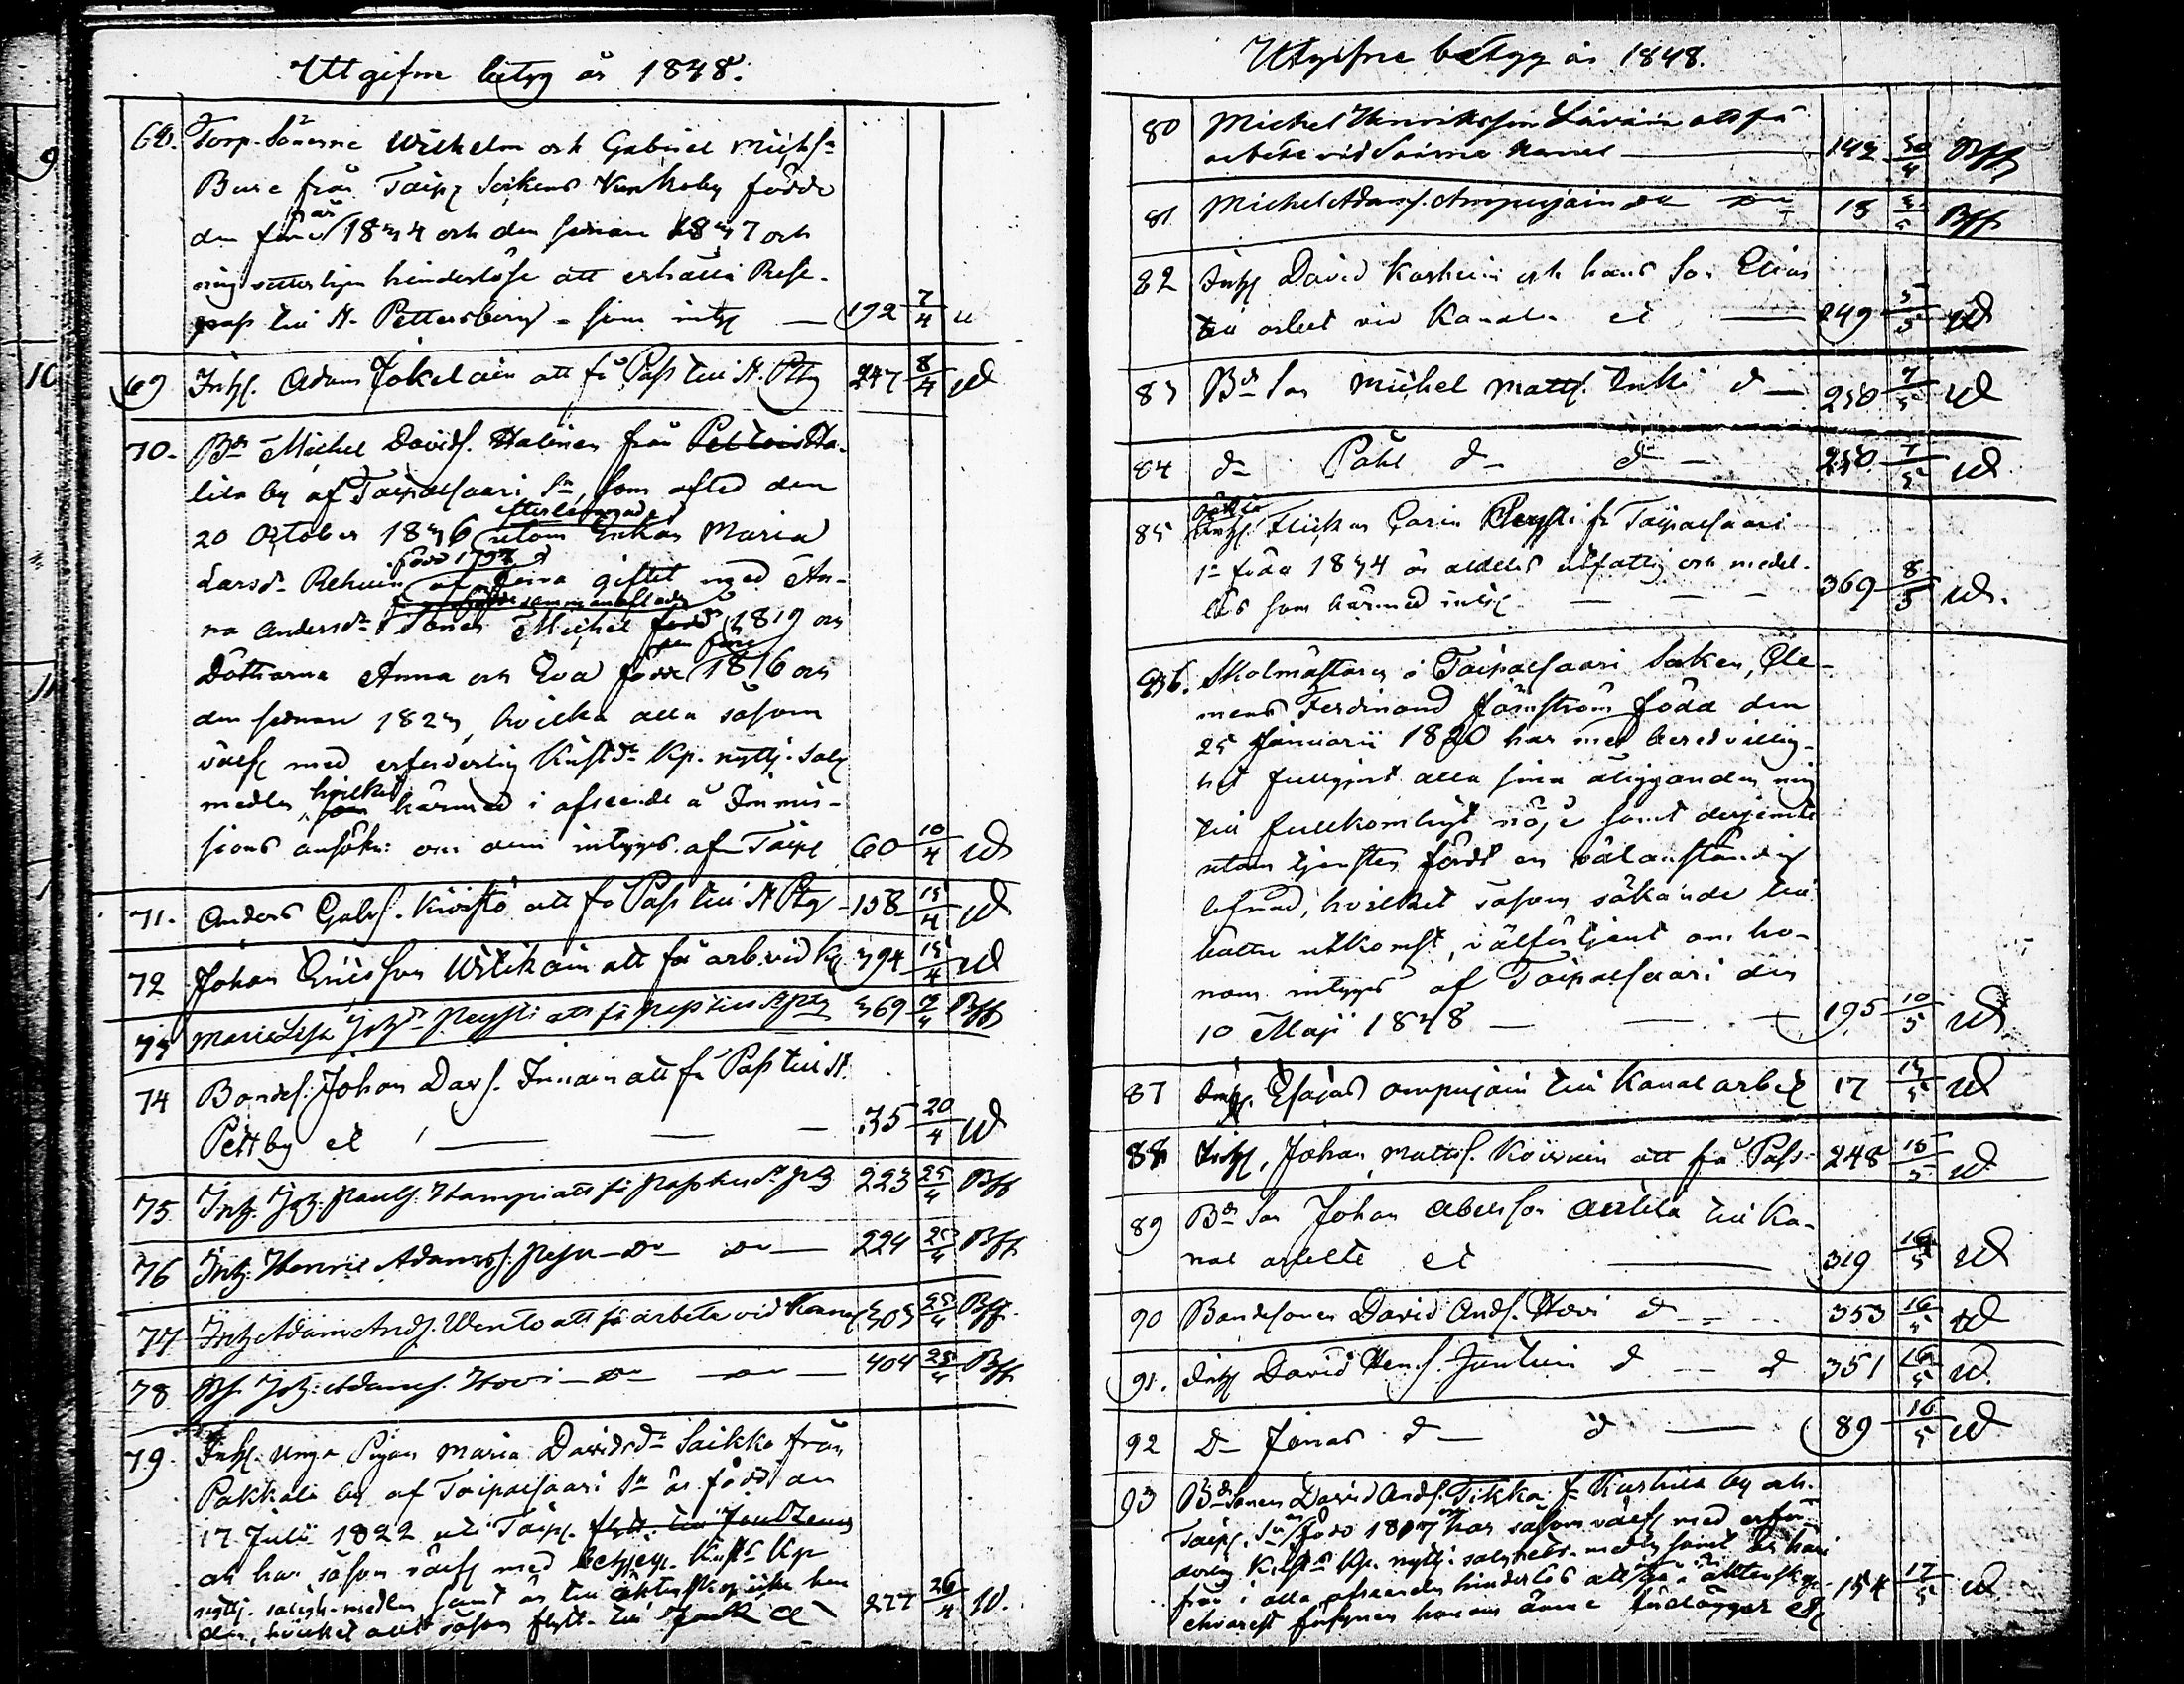 Utgifne betyg år 1848.
68. Torp. Sönerne Wilhelm och Gabriel Michs:
Bure från Taipl Sockens Kunkoby födde
den förre år 1844 och den sednare 1847 och
hinderlöse att erhålla Rese-
pass till St. Pettersburg - som intyg — 192 7/4 U
69 Inhs. Adam Jokelain att få Pass till St. Ptbg 247 8/4 Ud
70. Bd Michel Davids. Halinen från Ha-
lila by af Taipalsaari Sn, som afled den
20 October 1846 efterlemnade utom Enkan Maria
Larsdr Rehuin född 1797 giftet med An-
na Andersdr Sonen Michel född 1819 och
Döttrarne Anna och Eva födde den förre 1816 och
den sednare 1823, hvilka alla såsom
välfr med erforderlig Kristdr Kp. nyttj. Salg
medlen, hvilket härmed i afseende å Immis-
sions ansökn: om dem intygas af Taipl 60 10/4 Ud
71. Anders Gabrs. Kivistö att få Pass till St Ptbg 158 15/4 Ud
72 Johan Ericsson Wilikain att få arb. vid K 394 15/4 Ud
73 Maria Lisa Johdr Peysti att få pass till St Ptbg 369 /4 Bff
74 Bondes. Johan Davs. Innain att få Pass till St.
Pettbg et — — — 35 20/4 Ud
75 Inh. Joh: Pauls. Hampi att få pass till St. Ptb 223 25/4 Bff
76 Inh: Henric Adamss. Pesu — do — do — 224 25/4 Bff
77 Inh Adam Ands. Wento att få arbeta vid Kanal 303 25/4 Bff
78 Bs Joh: Adams. Hovi — do — do — 404 25/4 Bff
79. Inhs. unga Pigan Maria Davidsdr Saikko från
Pakkala by af Taipalsaari Sn är född den
17 Julii 1822 uti Taipl.
och har såsom välfr med behjelp. Krist. Kp
nyttj. salighs-medlen samt är till äktenskap icke bun
den, hvilket allt såsom flytt. till Jouk et 277 26/4 U.
Utgifne betyg år 1848.
80 Michel Henriksson Lavain att få
arbeta vid Saima Kanal — 142 30/4 Bff
81 Michel Adams. Ampujain do do 18 /5 Bff
82 Inhs David Karhuin och hans Son Elias
till arbet vid Kanalen et — 249 5/5 Ud
83 Bd Son Michel Matts. Inki d — 250 7/5 Ud
84 d— Påhl d— d— 250 7/5 Ud
85 Inhs. Flickan Carin Peysti fr Taipalsaari
Sn född 1844 är alldeles utfattig och medel-
lös som härmed intyg — — — 369 8/5 Ud.
86. Skolmästaren i Taipalsaari Socken, Cle-
mens Ferdinand Förnström född den
25 Januarii 1820 har med beredvillig-
het fullgjort alla sina åligganden mig
till fullkomligt nöje samt derjemte
utom tjensten fördt en välanständig
lefnad, hvilket såsom sökande till
bättre utkomst, välförtjent om ho-
nom intygas af Taipalsaari den
10 Maji 1848 — — — 195 10/5 Ud
87 Inhs. Esajas Ampujain till Kanal arbete 17 /5 Ud
88 Inhs, Johan Matts. Koivuin att få Pass. 248 15/5 Ud
89 Bd Son Johan Abelsson Aulila till Ka-
nal arbete et — 319 16/5 Ud
90 Bondesonen David Ands. Hovi d — 353 16/5 Ud
91. Inhs David Henrs. Juntuin d — d 351 16/5 Ud
92 d— Jonas d— d — 89 16/5 Ud
93 Bd Sonen David Ands. Tikka fr Karhula by och
Taipl. Sn är född 1817 har såsom välfr med erfor-
derlig Krist Kp. nyttj. salighets-medlen samt är
fri i alla afseenden hinderlös att ingå i äktenskap
ehvarest försynen honom ämne förelägger et 154 17/5 Ud